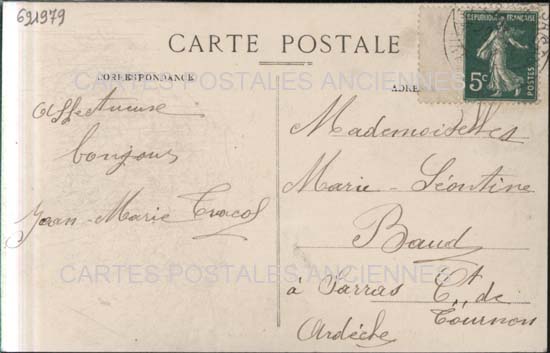 691979
CARTE POSTALE
CORRESPONDANCE
ADRE
RÉPUBLIQUE FRANÇAISE
5c
POSTES
Affectueuse
bonjour
Jean-Marie Tracol
Mademoiselles
Marie-Léontine
Baud
à Sarras Ct. de
Tournon
Ardèche
CARTES POSTALES ANCIENNES
CARTES POSTALES ANCIENNES